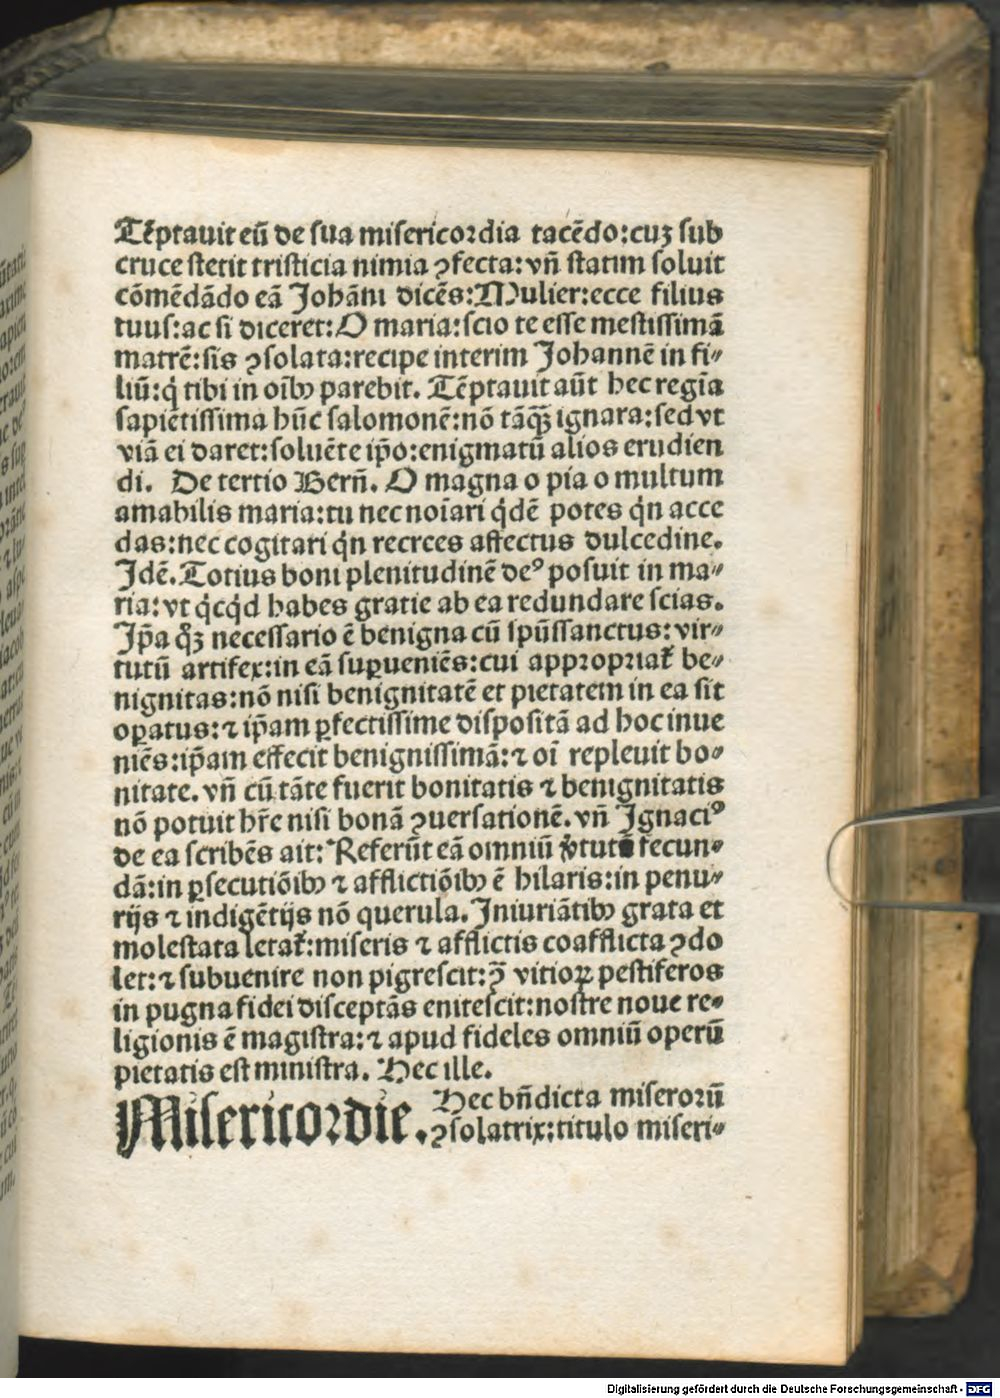 Tēptauit eū de sua misericordia tacēdo:cuȝ sub
cruce stetit tristicia nimia ꝯfecta:vñ statim soluit
cōmēdādo eā Johāni dicēs:Mulier:ecce filius
tuus:ac si diceret:O maria:scio te esse mestissimā
matrē:sis ꝯsolata:recipe interim Johannē in fi⸗
liū:q̇ tibi in oībꝰ parebit. Tēptauit aūt hec regīa
sapiētissima hūc salomonē:nō tāqȝ̄ ignara:sed vt
viā ei daret:soluēte ip̄o:enigmatū alios erudien
di. De tertio Berñ. O magna o pia o multum
amabilis maria:tu nec noīari q̇dē potes q̇n acce
das:nec cogitari q̇n recrees affectus dulcedine.
Jdē. Totius boni plenitudinē deꝰ posuit in ma⸗
ria:vt q̇cq̇d habes gratie ab ea redundare scias.
Jp̄a q̊ȝ necessario ē benigna cū sp̄ūssanctus:vir⸗
tutū artifex:in eā suꝑueniēs:cui appropriat᷑ be⸗
nignitas:nō nisi benignitatē et pietatem in ea sit
oꝑatus:⁊ ip̄am ꝑfectissime dispositā ad hoc inue
niēs:ip̄am effecit benignissimā:⁊ oī repleuit bo⸗
nitate. vñ cū tāte fuerit bonitatis ⁊ benignitatis
nō potuit hr̄e nisi bonā ꝯuersationē. vñ Jgnaciꝰ
de ea scribēs ait: Referūt eā omniū v̓tutū fecun⸗
dā:in ꝑsecutiōibꝰ ⁊ afflictiōibꝰ ē hilaris:in penu⸗
rijs ⁊ indigētijs nō querula. Jniuriātibꝰ grata et
molestata letat᷑:miseris ⁊ afflictis coafflicta ꝯdo
let:⁊ subuenire non pigrescit:ꝯ̄ vitioꝝ pestiferos
in pugna fidei disceptās enitescit:nostre noue re⸗
ligionis ē magistra:⁊ apud fideles omniū operū
pietatis est ministra. Hec ille.
Misericordie. Hec bn̄dicta miserorū
ꝯsolatrix:titulo miseri⸗
Digitalisierung gefördert durch die Deutsche Forschungsgemeinschaft - DFG